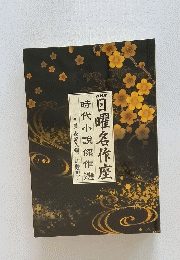 NHK
日曜名作座
時代小説傑作選